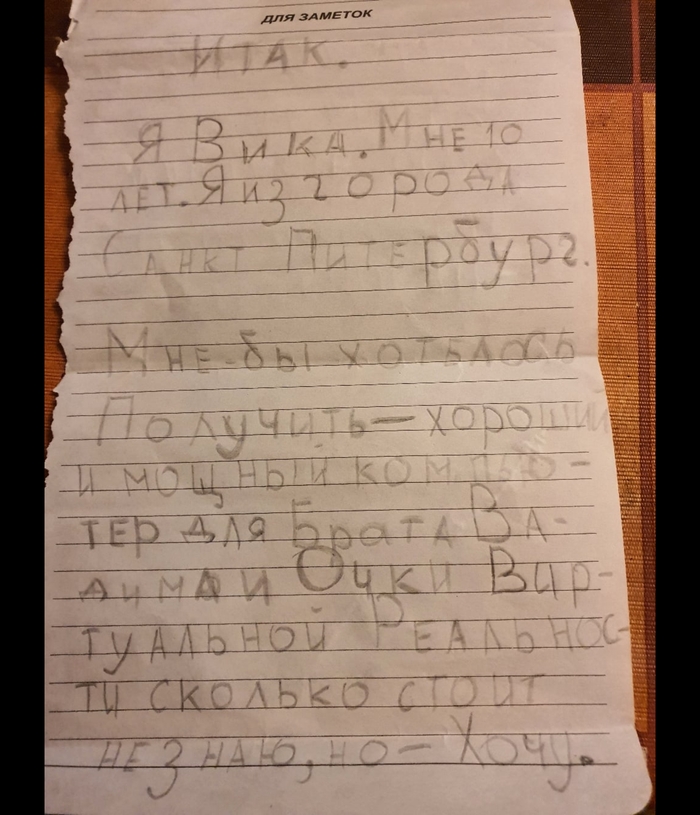 ДЛЯ ЗАМЕТОК
ИТАК.
Я ВИКА. МНЕ 10
ЛЕТ. Я ИЗ ГОРОДА
САНКТ ПИТЕРБУРГ.
МНЕ-БЫ ХОТЬЛОСЬ
ПОЛУЧИТЬ — ХОРОШИЙ
И МОЩНЫЙ КОМПЬЮ-
ТЕР ДЛЯ БРАТА ВА-
ДИМА И ОЧКИ ВИР-
ТУАЛЬНОЙ РЕАЛЬНОС-
ТИ СКОЛЬКО СТОИТ
НЕ ЗНАЮ, НО — ХОЧУ.